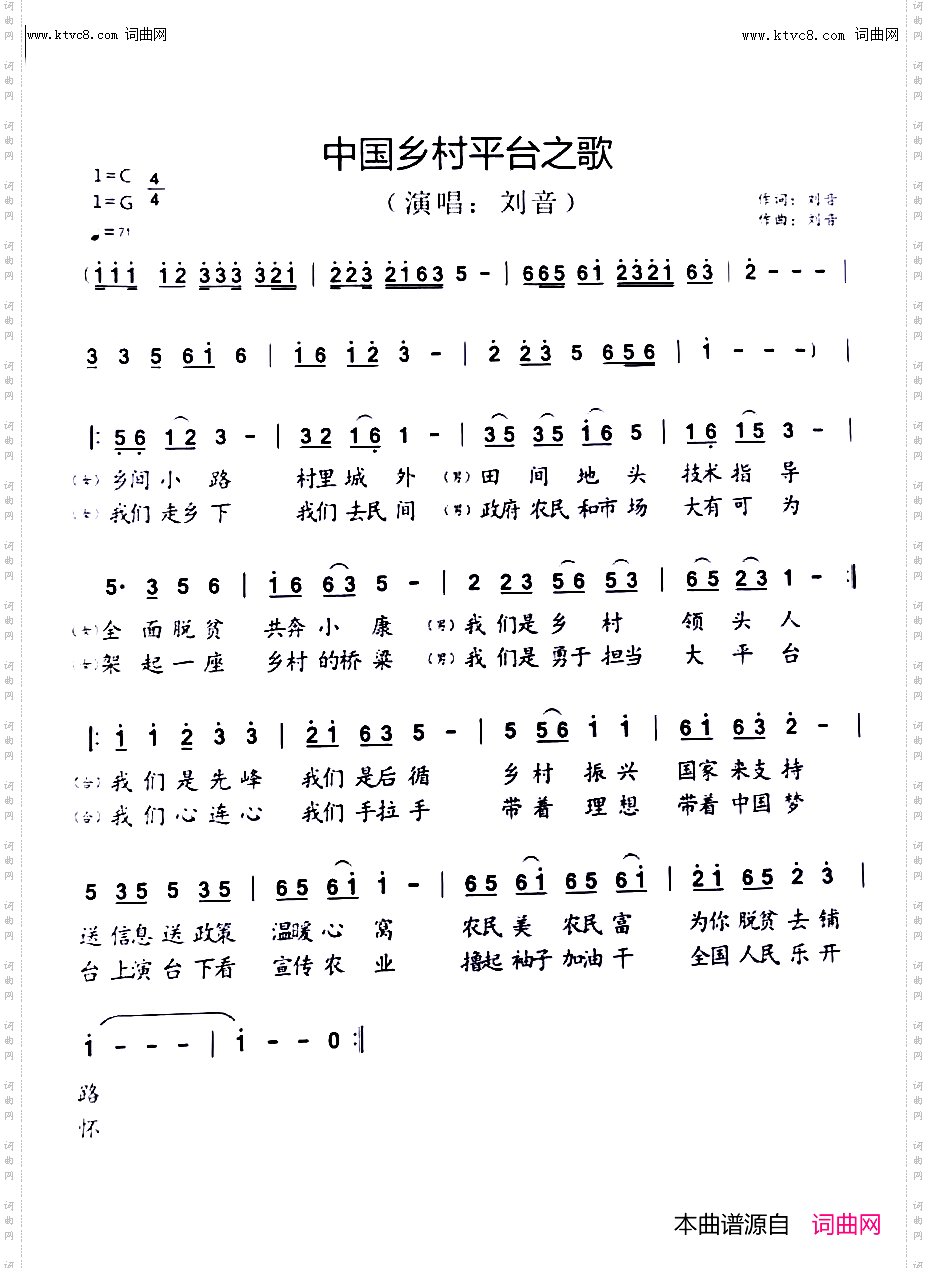 www.ktvc8.com 词曲网 www.ktvc8.com 词曲网
中国乡村平台之歌
1=C 4/4
1=G
（演唱：刘音）
作词：刘音
作曲：刘音
♩=71
(i i i i 2 3 3 3 3 2 i | 2 2 3 2 i 6 3 5 - | 6 6 5 6 i 2 3 2 i 6 3 | 2 - - - |
3 3 5 6 i 6 | i 6 i 2 3 - | 2 2 3 5 6 5 6 | i - - -) |
|: 5 6 1 2 3 - | 3 2 1 6 1 - | 3 5 3 5 1 6 5 | 1 6 1 5 3 - |
（女）乡间小路 村里城外 （男）田间地头 技术指导
（女）我们走乡下 我们去民间 （男）政府农民和市场 大有可为
5· 3 5 6 | i 6 6 3 5 - | 2 2 3 5 6 5 3 | 6 5 2 3 1 - :|
（女）全面脱贫 共奔小康 （男）我们是乡村 领头人
（女）架起一座 乡村的桥梁 （男）我们是勇于担当 大平台
|: i i 2 3 3 | 2 i 6 3 5 - | 5 5 6 i i | 6 i 6 3 2 - |
（合）我们是先峰 我们是后循 乡村振兴 国家来支持
（合）我们心连心 我们手拉手 带着理想 带着中国梦
5 3 5 5 3 5 | 6 5 6 i i - | 6 5 6 i 6 5 6 i | 2 i 6 5 2 3 |
送信息送政策 温暖心窝 农民美农民富 为你脱贫去铺
台上演台下看 宣传农业 撸起袖子加油干 全国人民乐开
i - - - | i - - 0 :|
路
怀
本曲谱源自 词曲网